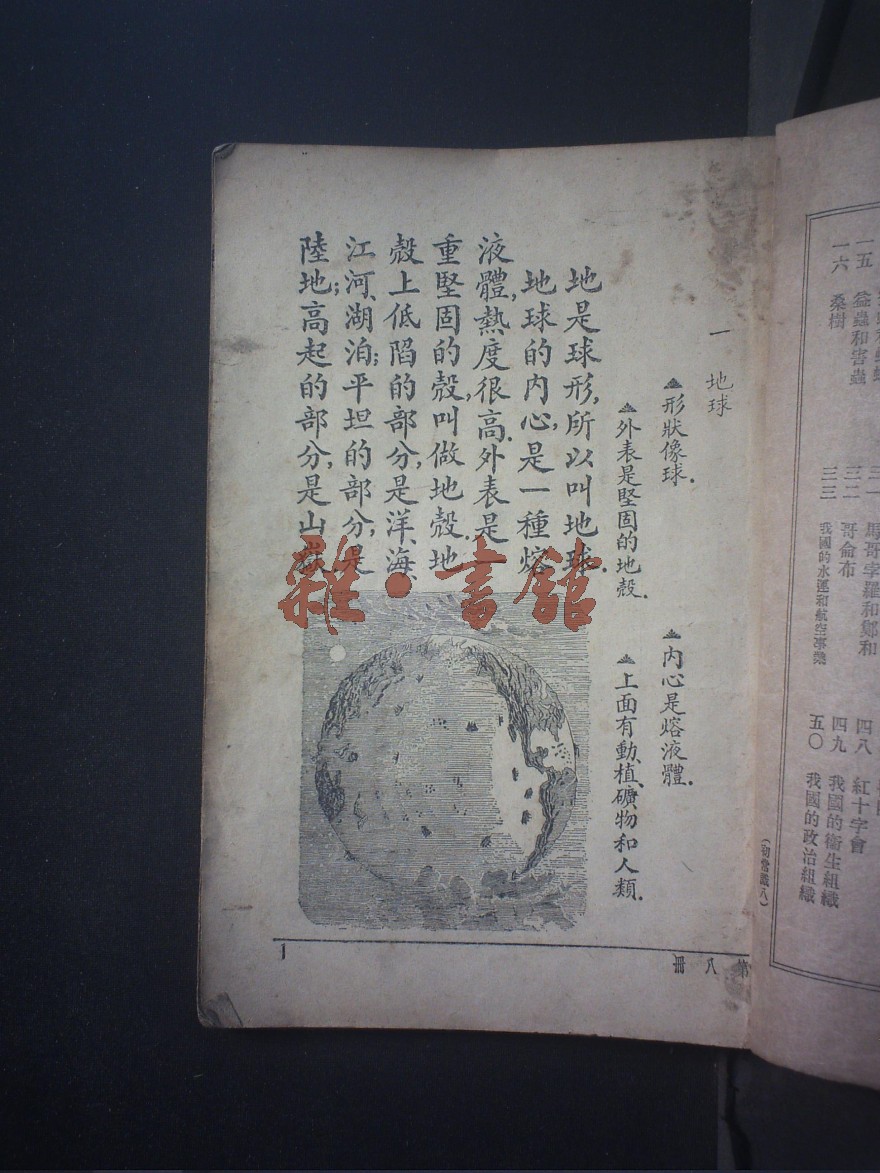 一 地球
▲形狀像球.
▲內心是熔液體.
▲外表是堅固的地殼.
▲上面有動、植、礦物和人類.
地是球形,所以叫地球.
地球的內心,是一種熔
液體,熱度很高.外表是一
重堅固的殼,叫做地殼.地
殼上低陷的部分,是洋、海、
江河、湖泊;平坦的部分,是
陸地;高起的部分,是山嶽.
雜·書館
第八冊
1
(初常識八)
一五 益蟲和害蟲
一六 桑樹
三一 馬哥孛羅和鄭和
三二 哥侖布
三三 我國的水運和航空事業
四八 紅十字會
四九 我國的衞生組織
五〇 我國的政治組織